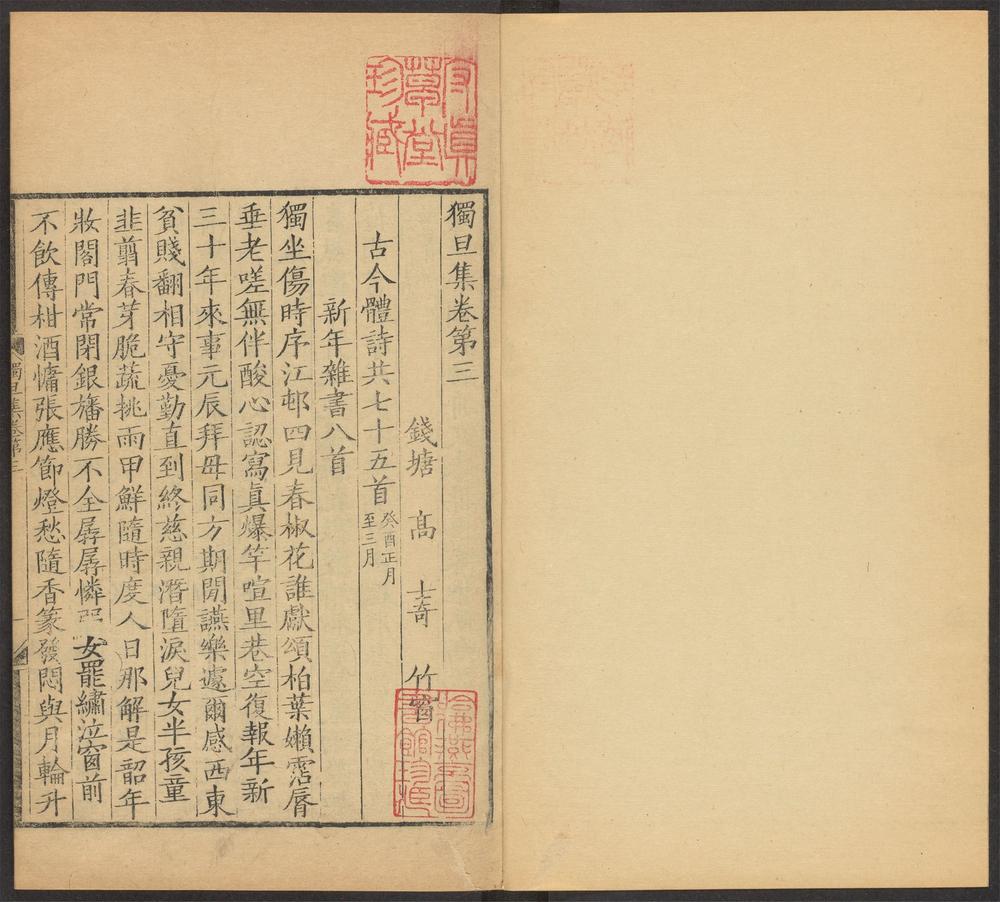 獨旦集卷第三
錢塘 高 士奇 竹窗
古今體詩共七十五首 癸酉正月
至三月
新年雜書八首
獨坐傷時序江邨四見春椒花誰獻頌柏葉嬾霑脣
垂老嗟無伴酸心認寫眞爆竿喧里巷空復報年新
三十年來事元辰拜母同方期閒讌樂遽爾感西東
貧賤翻相守憂勤直到終慈親潛墮淚兒女半孩童
韭翦春芽脆蔬挑雨甲鮮隨時度人日那解是韶年
妝閣門常閉銀旛勝不全孱孱憐 女罷繡泣窗前
不飲傳柑酒慵張應節燈愁隨香篆發悶與月輪升
獨旦集卷第三
一
尋真草堂珍藏
哈佛燕京圖書館珍藏